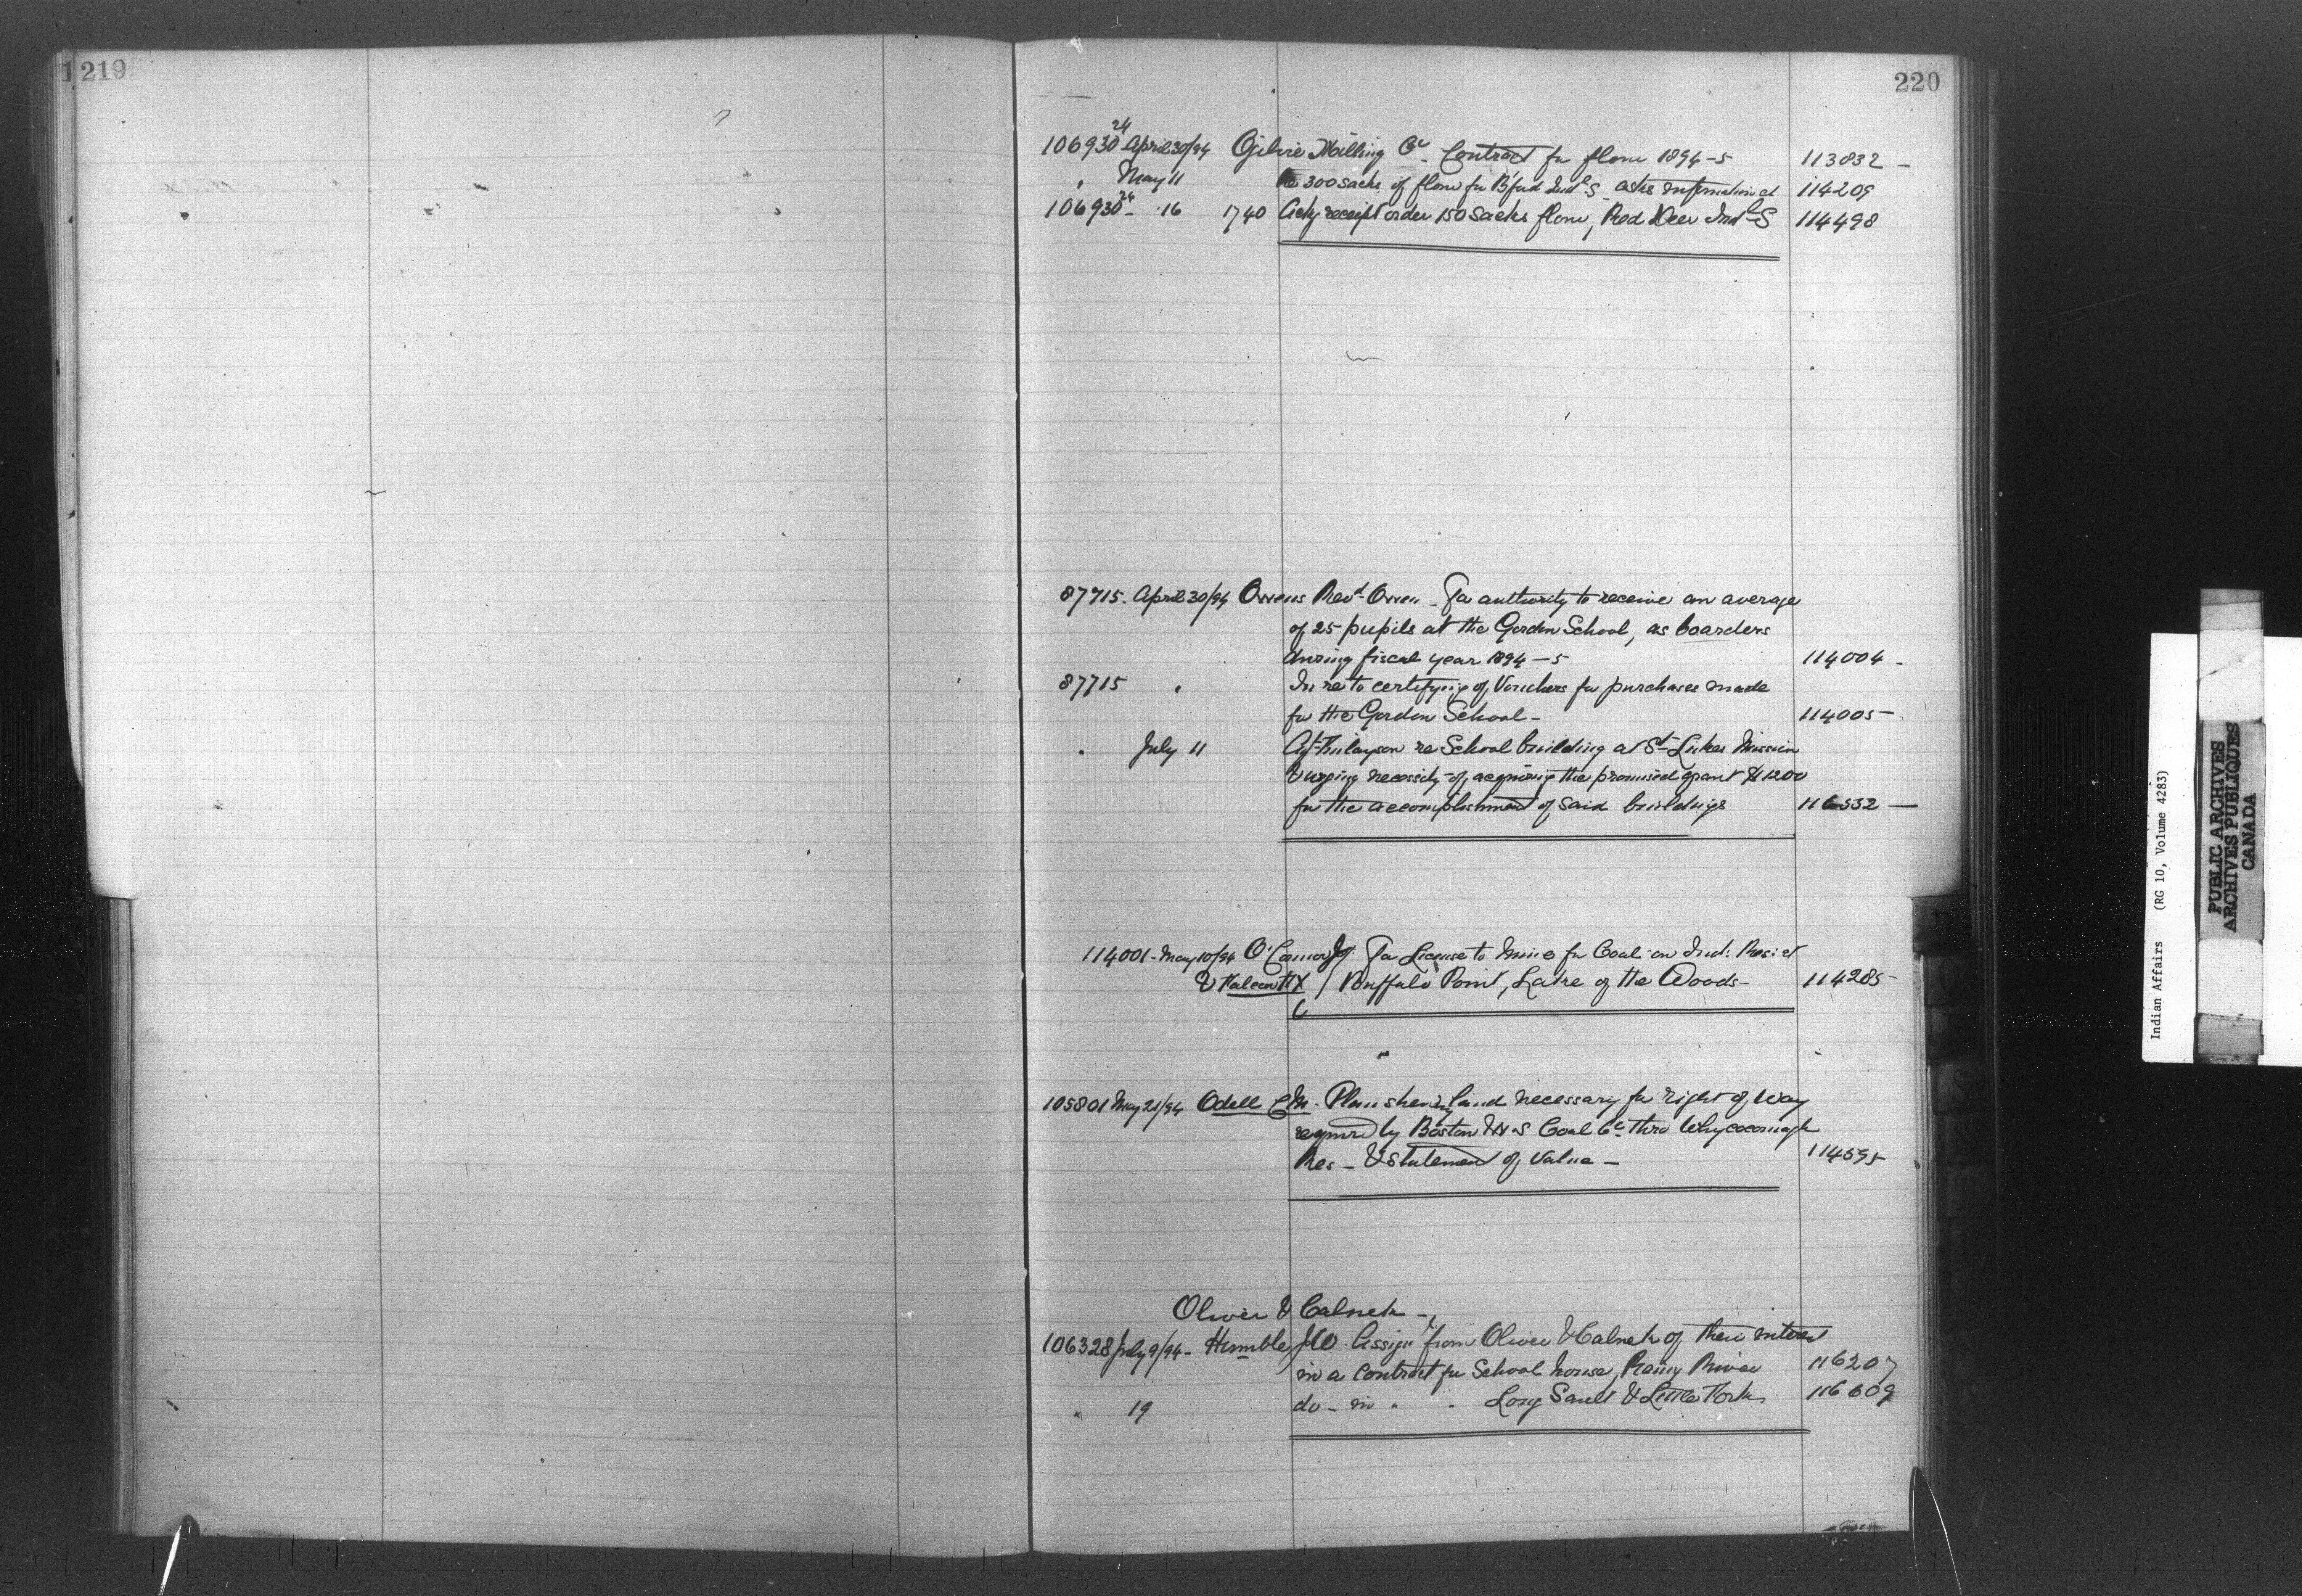 1219
220
106930²⁴ April 30/94 Ogilvie Milling Co - Contract for flour 1894-5 113832 -
" May 11 Re 300 sacks of flour for B'ford Indl S. asks information et 114209
106930²⁴ - 16 1740 Ackg receipt order 150 Sacks flour, Red Deer Indl S 114498
87715. April 30/94 Owens Revd Owen - For authority to receive an average
of 25 pupils at the Gordon School, as boarders
during fiscal year 1894-5 114004 -
87715 " In re to certifying of Vouchers for purchases made
for the Gordon School - 114005 -
" July 11 re School building at St Lukes Mission
& urging necessity of acquiring the promised grant $1200
for the accomplishment of said buildings 116332 -
114001 - May 10/94 O'Connor For License to Mine for Coal on Ind: Res: at
& Buffalo Point, Lake of the Woods - 114285 -
105801 May 21/94 Odell C M. Plan shewing land necessary for right of way
required by Boston & N S Coal Co thro Whycocomagh
Res - & Statement of Value - 114595
Oliver & Calnek -
106328 July 9/94 - Humble J O. Assigt from Oliver & Calnek of their interest
in a contract for School house, Rainy River 116207
" 19 do - in " " Long Sault & Little Forks 116609
Indian Affairs (RG 10, Volume 4283)
PUBLIC ARCHIVES
ARCHIVES PUBLIQUES
CANADA